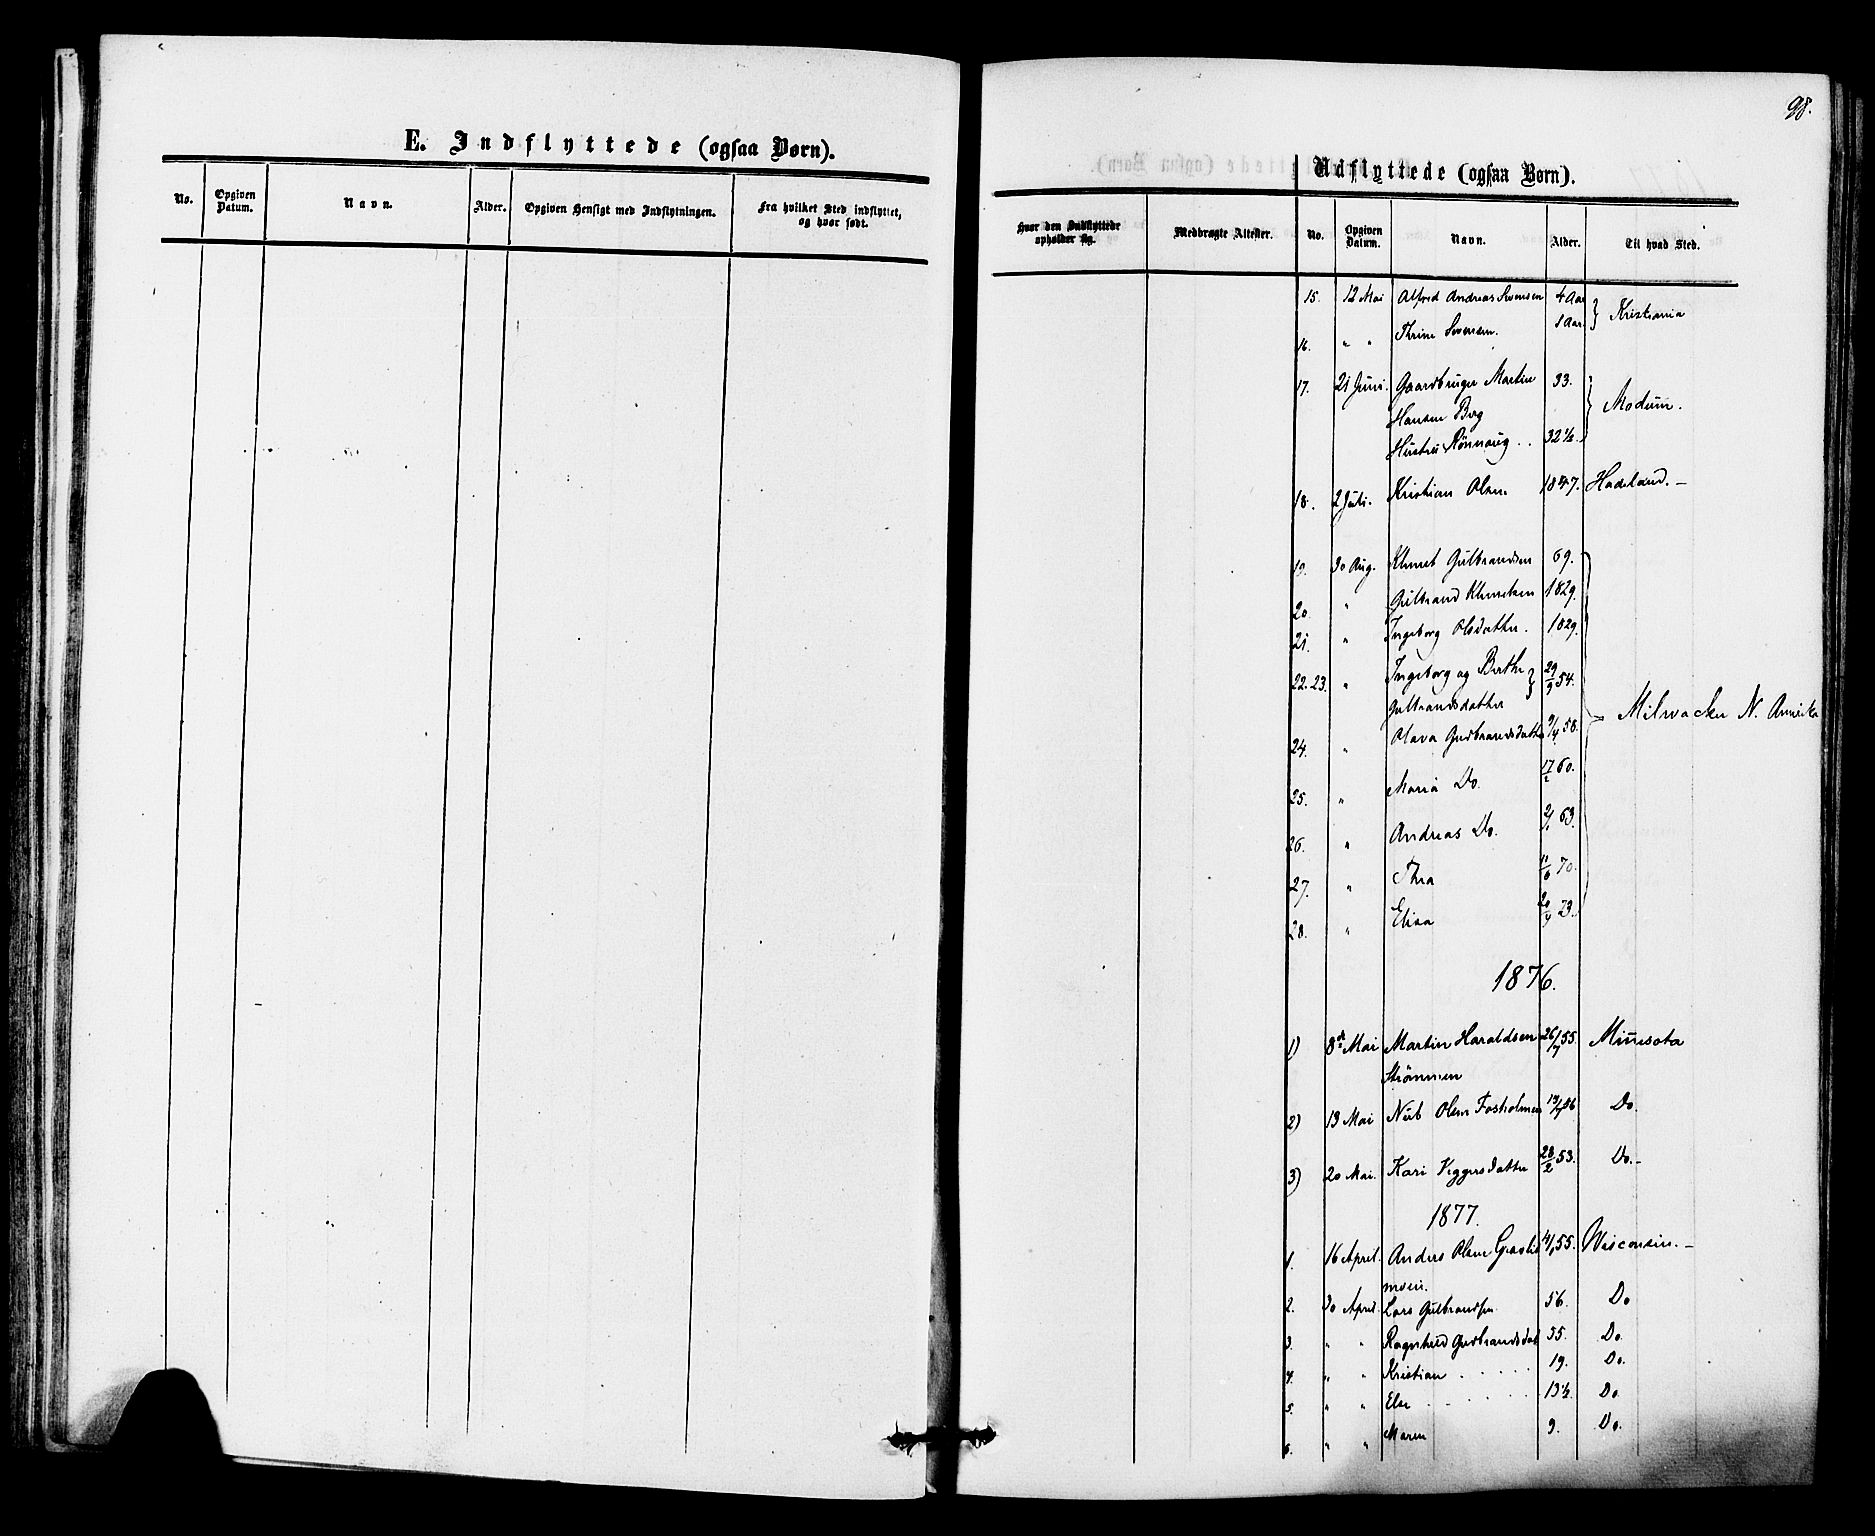 98.
E. Indflyttede (ogsaa Børn).
No. Opgiven Datum. Navn. Alder. Opgiven Hensigt med Indflytningen. Fra hvilket Sted indflyttet, og hvor født.
Udflyttede (ogsaa Børn).
Hvor den Indflyttede opholder sig. Medbragte Attester. No. Opgiven Datum. Navn. Alder. Til hvad Sted.
15. 12 Mai Alfred Andreas Svensen 4 Aar } Kristiania
16. " " Thrine Svensen. 1 Aar.
17. 21 Juni. Gaardbruger Martin 33. } Modum.
Hansen Berg
Hustru Rönnaug . . 32 ½.
18. 2 Juli. Kristian Olsen 1847. Hadeland. –
19. 30 Aug. Klemet Gulbrandsen 69.
20 " Gulbrand Klemetsen 1829.
21. " Ingeborg Olsdatter. 1829.
22. 23. " Ingeborg og Berthe } 29/9 54.
Gulbrandsdatter
} Milwackee N. Amerika
24. " Olava Gudbrandsdatter 9/4 58.
25. " Maria Do. 17/2 60.
26. " Andreas Do. 2/1 63.
27. " Thea 11/6 70.
28. " Elisa 20/4 73.
1876.
1) 8de Mai Martin Haraldsen 26/7 55. Minesota
Strömmen
2) 13 Mai Nub Olsen Fosholmen Do.
3) 20 Mai. Kari Viggersdatter 28/2 53. Do. –
1877.
1. 16 April. Anders Olsen 4/1 55. Wisconsin. –
moen.
2. 30 April. Lars Gulbrandsen 56. Do
3. " " Ragnhild Gudbrandsdat 55. Do.
4. " " Kristian . . . . 19. Do.
5. " " Else . . . . . 13 ½. Do.
6. " " Maren 9. Do.